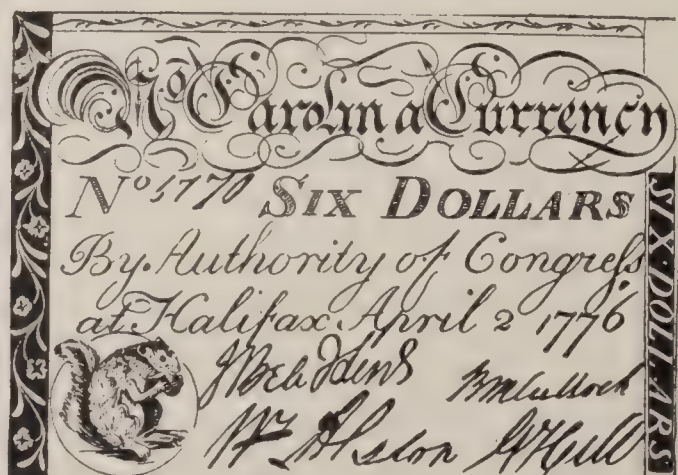 No Carolina Currency
No 5770 SIX DOLLARS
By Authority of Congreſs
at Halifax April 2 1776
SIX·DOLLARS
Wm Alston